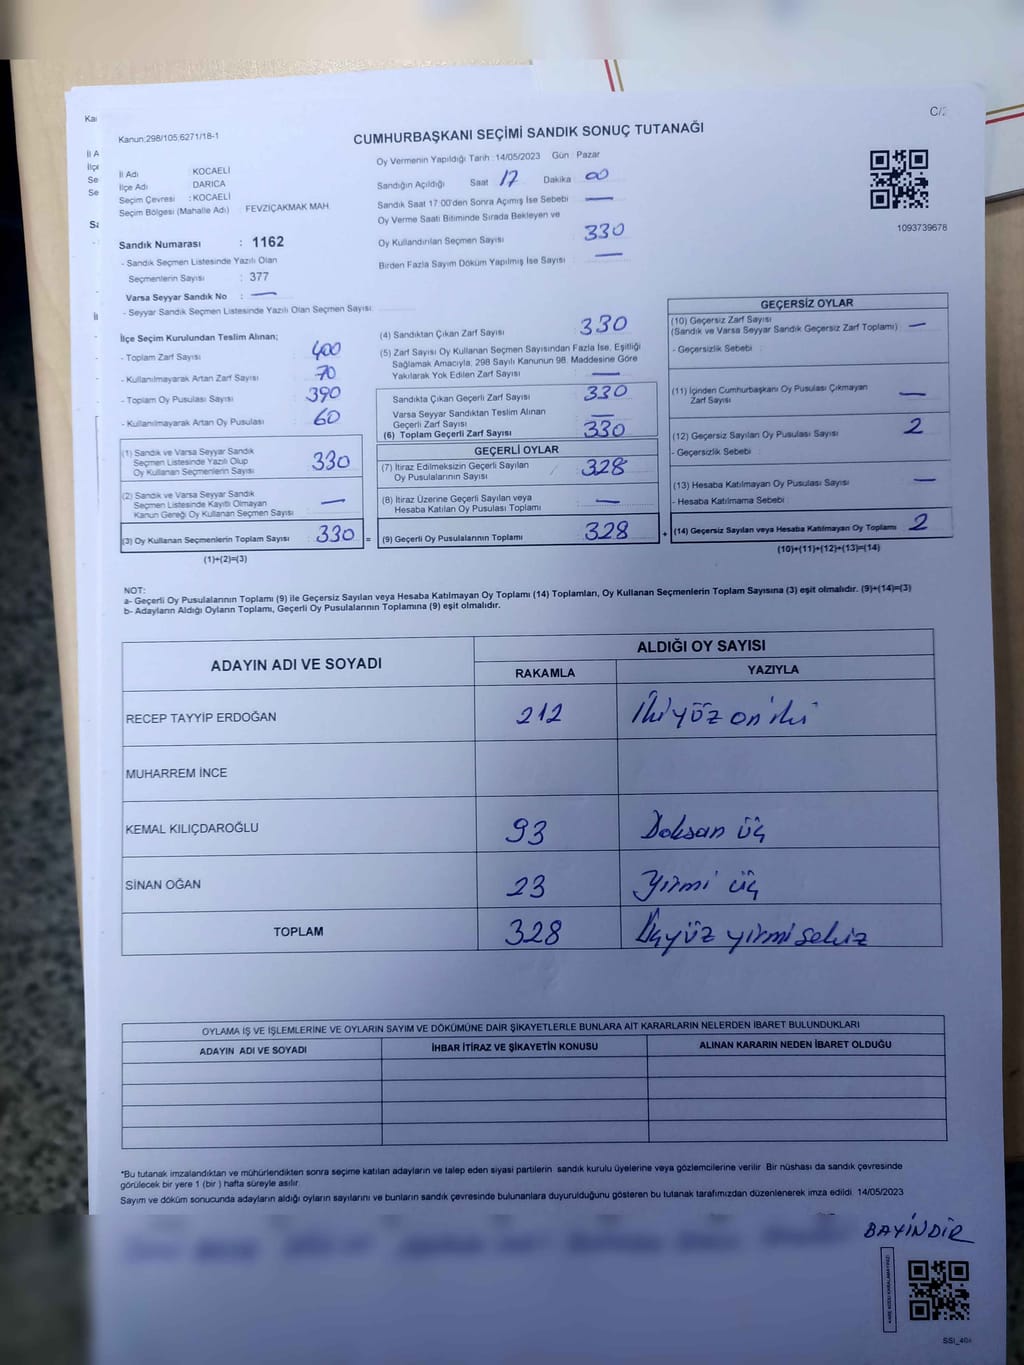 Kanun:298/105;6271/18-1
C/2
CUMHURBAŞKANI SEÇİMİ SANDIK SONUÇ TUTANAĞI
İl Adı : KOCAELİ
İlçe Adı : DARICA
Seçim Çevresi : KOCAELİ
Seçim Bölgesi (Mahalle Adı) FEVZİÇAKMAK MAH.
Sandık Numarası : 1162
- Sandık Seçmen Listesinde Yazılı Olan
Seçmenlerin Sayısı : 377
Varsa Seyyar Sandık No : —
- Seyyar Sandık Seçmen Listesinde Yazılı Olan Seçmen Sayısı:
Oy Vermenin Yapıldığı Tarih :14/05/2023 Gün Pazar
Sandığın Açıldığı Saat 17 Dakika 00
Sandık Saat 17:00'den Sonra Açımış İse Sebebi —
Oy Verme Saati Bitiminde Sırada Bekleyen ve
Oy Kullandırılan Seçmen Sayısı 330
Birden Fazla Sayım Döküm Yapılmış İse Sayısı —
1093739678
İlçe Seçim Kurulundan Teslim Alınan;
- Toplam Zarf Sayısı : 400
- Kullanılmayarak Artan Zarf Sayısı : 70
- Toplam Oy Pusulası Sayısı : 390
- Kullanılmayarak Artan Oy Pusulası : 60
(1) Sandık ve Varsa Seyyar Sandık
Seçmen Listesinde Yazılı Olup
Oy Kullanan Seçmenlerin Sayısı : 330
(2) Sandık ve Varsa Seyyar Sandık
Seçmen Listesinde Kayıtlı Olmayan
Kanun Gereği Oy Kullanan Seçmen Sayısı : —
(3) Oy Kullanan Seçmenlerin Toplam Sayısı : 330
(1)+(2)=(3)
(4) Sandıktan Çıkan Zarf Sayısı : 330
(5) Zarf Sayısı Oy Kullanan Seçmen Sayısından Fazla İse, Eşitliği
Sağlamak Amacıyla; 298 Sayılı Kanunun 98. Maddesine Göre
Yakılarak Yok Edilen Zarf Sayısı : —
Sandıkta Çıkan Geçerli Zarf Sayısı : 330
Varsa Seyyar Sandıktan Teslim Alınan
Geçerli Zarf Sayısı : —
(6) Toplam Geçerli Zarf Sayısı : 330
GEÇERLİ OYLAR
(7) İtiraz Edilmeksizin Geçerli Sayılan
Oy Pusulası Sayısı : 328
(8) İtiraz Üzerine Geçerli Sayılan veya
Hesaba Katılan Oy Pusulası Toplamı : —
= (9) Geçerli Oy Pusulalarının Toplamı : 328
GEÇERSİZ OYLAR
(10) Geçersiz Zarf Sayısı
(Sandık ve Varsa Seyyar Sandık Geçersiz Zarf Toplamı) —
- Geçersizlik Sebebi :
(11) İçinden Cumhurbaşkanı Oy Pusulası Çıkmayan
Zarf Sayısı : —
(12) Geçersiz Sayılan Oy Pusulası Sayısı : 2
- Geçersizlik Sebebi :
(13) Hesaba Katılmayan Oy Pusulası Sayısı : —
- Hesaba Katılmama Sebebi :
+ (14) Geçersiz Sayılan veya Hesaba Katılmayan Oy Toplamı : 2
(10)+(11)+(12)+(13)=(14)
NOT:
a- Geçerli Oy Pusulalarının Toplamı (9) ile Geçersiz Sayılan veya Hesaba Katılmayan Oy Toplamı (14) Toplamları, Oy Kullanan Seçmenlerin Toplam Sayısına (3) eşit olmalıdır. (9)+(14)=(3)
b- Adayların Aldığı Oyların Toplamı, Geçerli Oy Pusulalarının Toplamına (9) eşit olmalıdır.
ADAYIN ADI VE SOYADI
ALDIĞI OY SAYISI
RAKAMLA YAZIYLA
RECEP TAYYİP ERDOĞAN 212 İkiyüz on iki
MUHARREM İNCE
KEMAL KILIÇDAROĞLU 93 Doksan üç
SİNAN OĞAN 23 Yirmi üç
TOPLAM 328 Üçyüz yirmi sekiz
OYLAMA İŞ VE İŞLEMLERİNE VE OYLARIN SAYIM VE DÖKÜMÜNE DAİR ŞİKAYETLERLE BUNLARA AİT KARARLARIN NELERDEN İBARET BULUNDUKLARI
ADAYIN ADI VE SOYADI İHBAR İTİRAZ VE ŞİKAYETİN KONUSU ALINAN KARARIN NEDEN İBARET OLDUĞU
*Bu tutanak imzalandıktan ve mühürlendikten sonra seçime katılan adayların ve talep eden siyasi partilerin sandık kurulu üyelerine veya gözlemcilerine verilir. Bir nüshası da sandık çevresinde
görülecek bir yere 1 (bir ) hafta süreyle asılır.
Sayım ve döküm sonucunda adayların aldığı oyların sayılarını ve bunların sandık çevresinde bulunanlara duyurulduğunu gösteren bu tutanak tarafımızdan düzenlenerek imza edildi. 14/05/2023
BAYINDIR